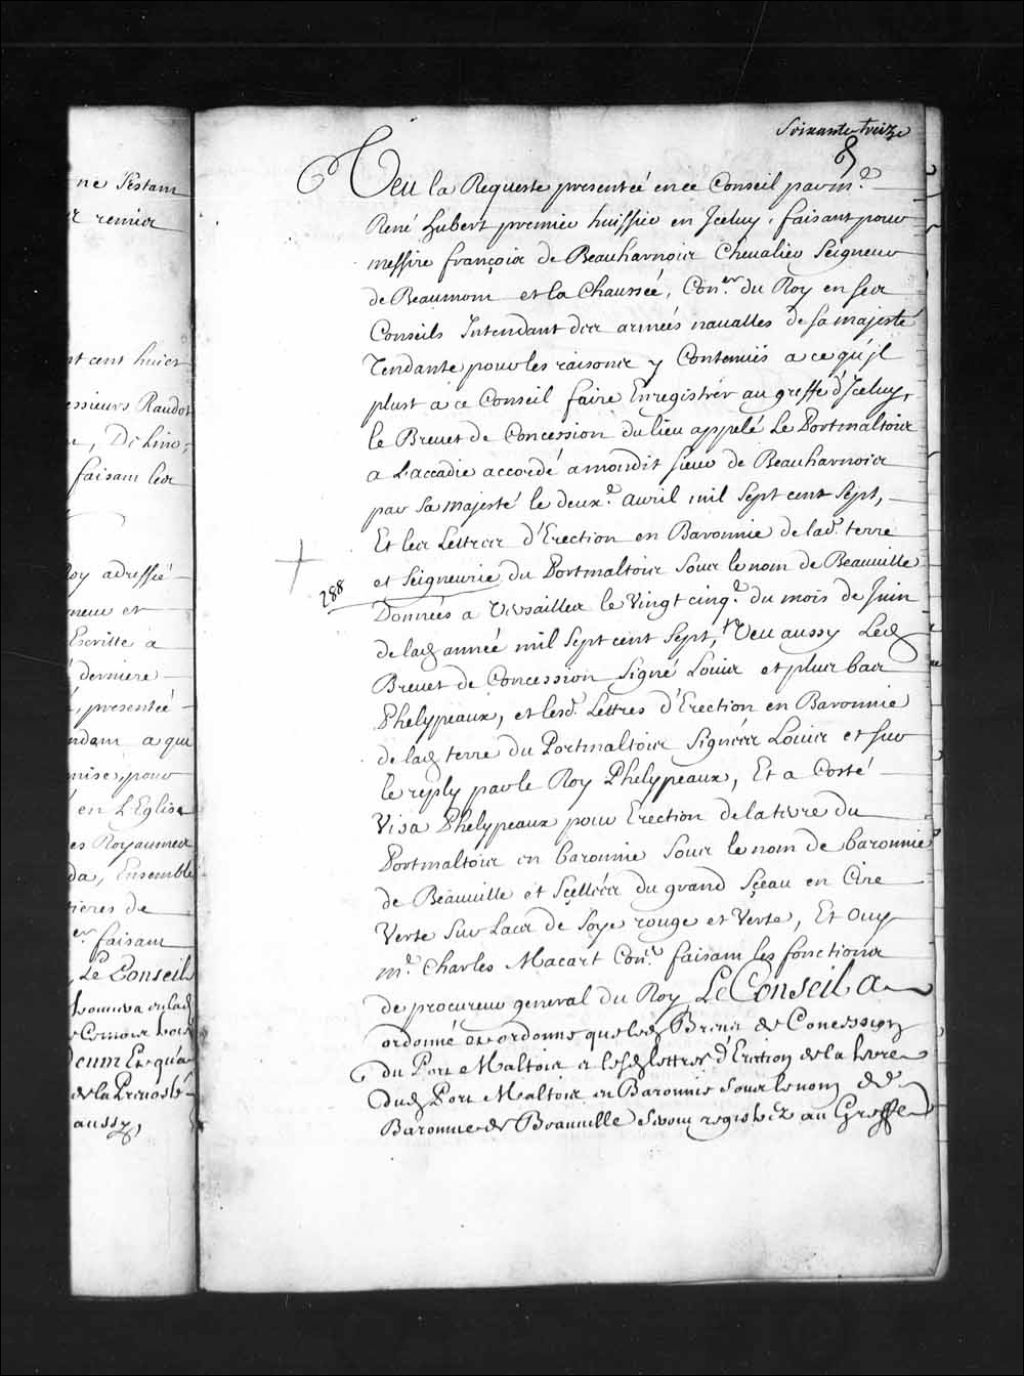 Soixante treize
Veu la Requeste presentée en ce Conseil par m.e
René hubert premier huissier en Jceluy, faisant pour
messire françois de Beauharnois Cheualier Seigneur
de Beaumont et la Chaussée, Con.er du Roy en ses
Conseils Jntendant des armées naualles de sa majesté
Tendante pour les raisons y Contenües a ce qu'jl
plust a ce Conseil faire Enregistrer au greffe d'Jceluy,
le Breuet de Concession du lieu appelé Le Portmaltois
a L'accadie accordé a mondit sieur de Beauharnois
par sa majesté le deux.e auril mil sept cent sept,
Et les Lettres d'Erection en Baronnie de lad. terre
et Seigneurie du Portmaltois sous le nom de Beauuille
288
Données a Versailles le Vingt cinq.e du mois de Juin
de lad année mil sept cent sept, Veu aussy Led
Breuet de Concession signé Louis et plus bas
Phelypeaux, et lesd. Lettres d'Erection en Baronnie
de lad terre du Portmaltois signées Louis et sur
le reply par le Roy Phelypeaux, Et a Costé
Visa Phelypeaux pour Erection de la terre du
Portmaltois en baronnie sous le nom de baronnie
de Beauuille et Sçellées du grand Sçeau en Cire
Verte sur Lacs de Soye rouge et Verte, Et Ouy
m.e Charles Macart Con.er faisant les fonctions
de procureur general du Roy, Le Conseil A
ordonné et ordonne que led Breuet de Concession
du Port Maltois et lesd lettres d'Erection de la terre
dud Port Maltois en Baronnie sous le nom de
Baronnie de Beauuille seront registréz au Greffe
ne Testam
r remier
nt cent huict
essieurs Raudot
e, De Lino,
faisant les
Roy adressé
neur et
Escritte a
derniere
, presentée
ndant a qui
mise, pour
en L'Eglise
es Royaumes
da, Ensemble
tieres de
er faisant
, Le Conseil
de la Preuosté
aussy,